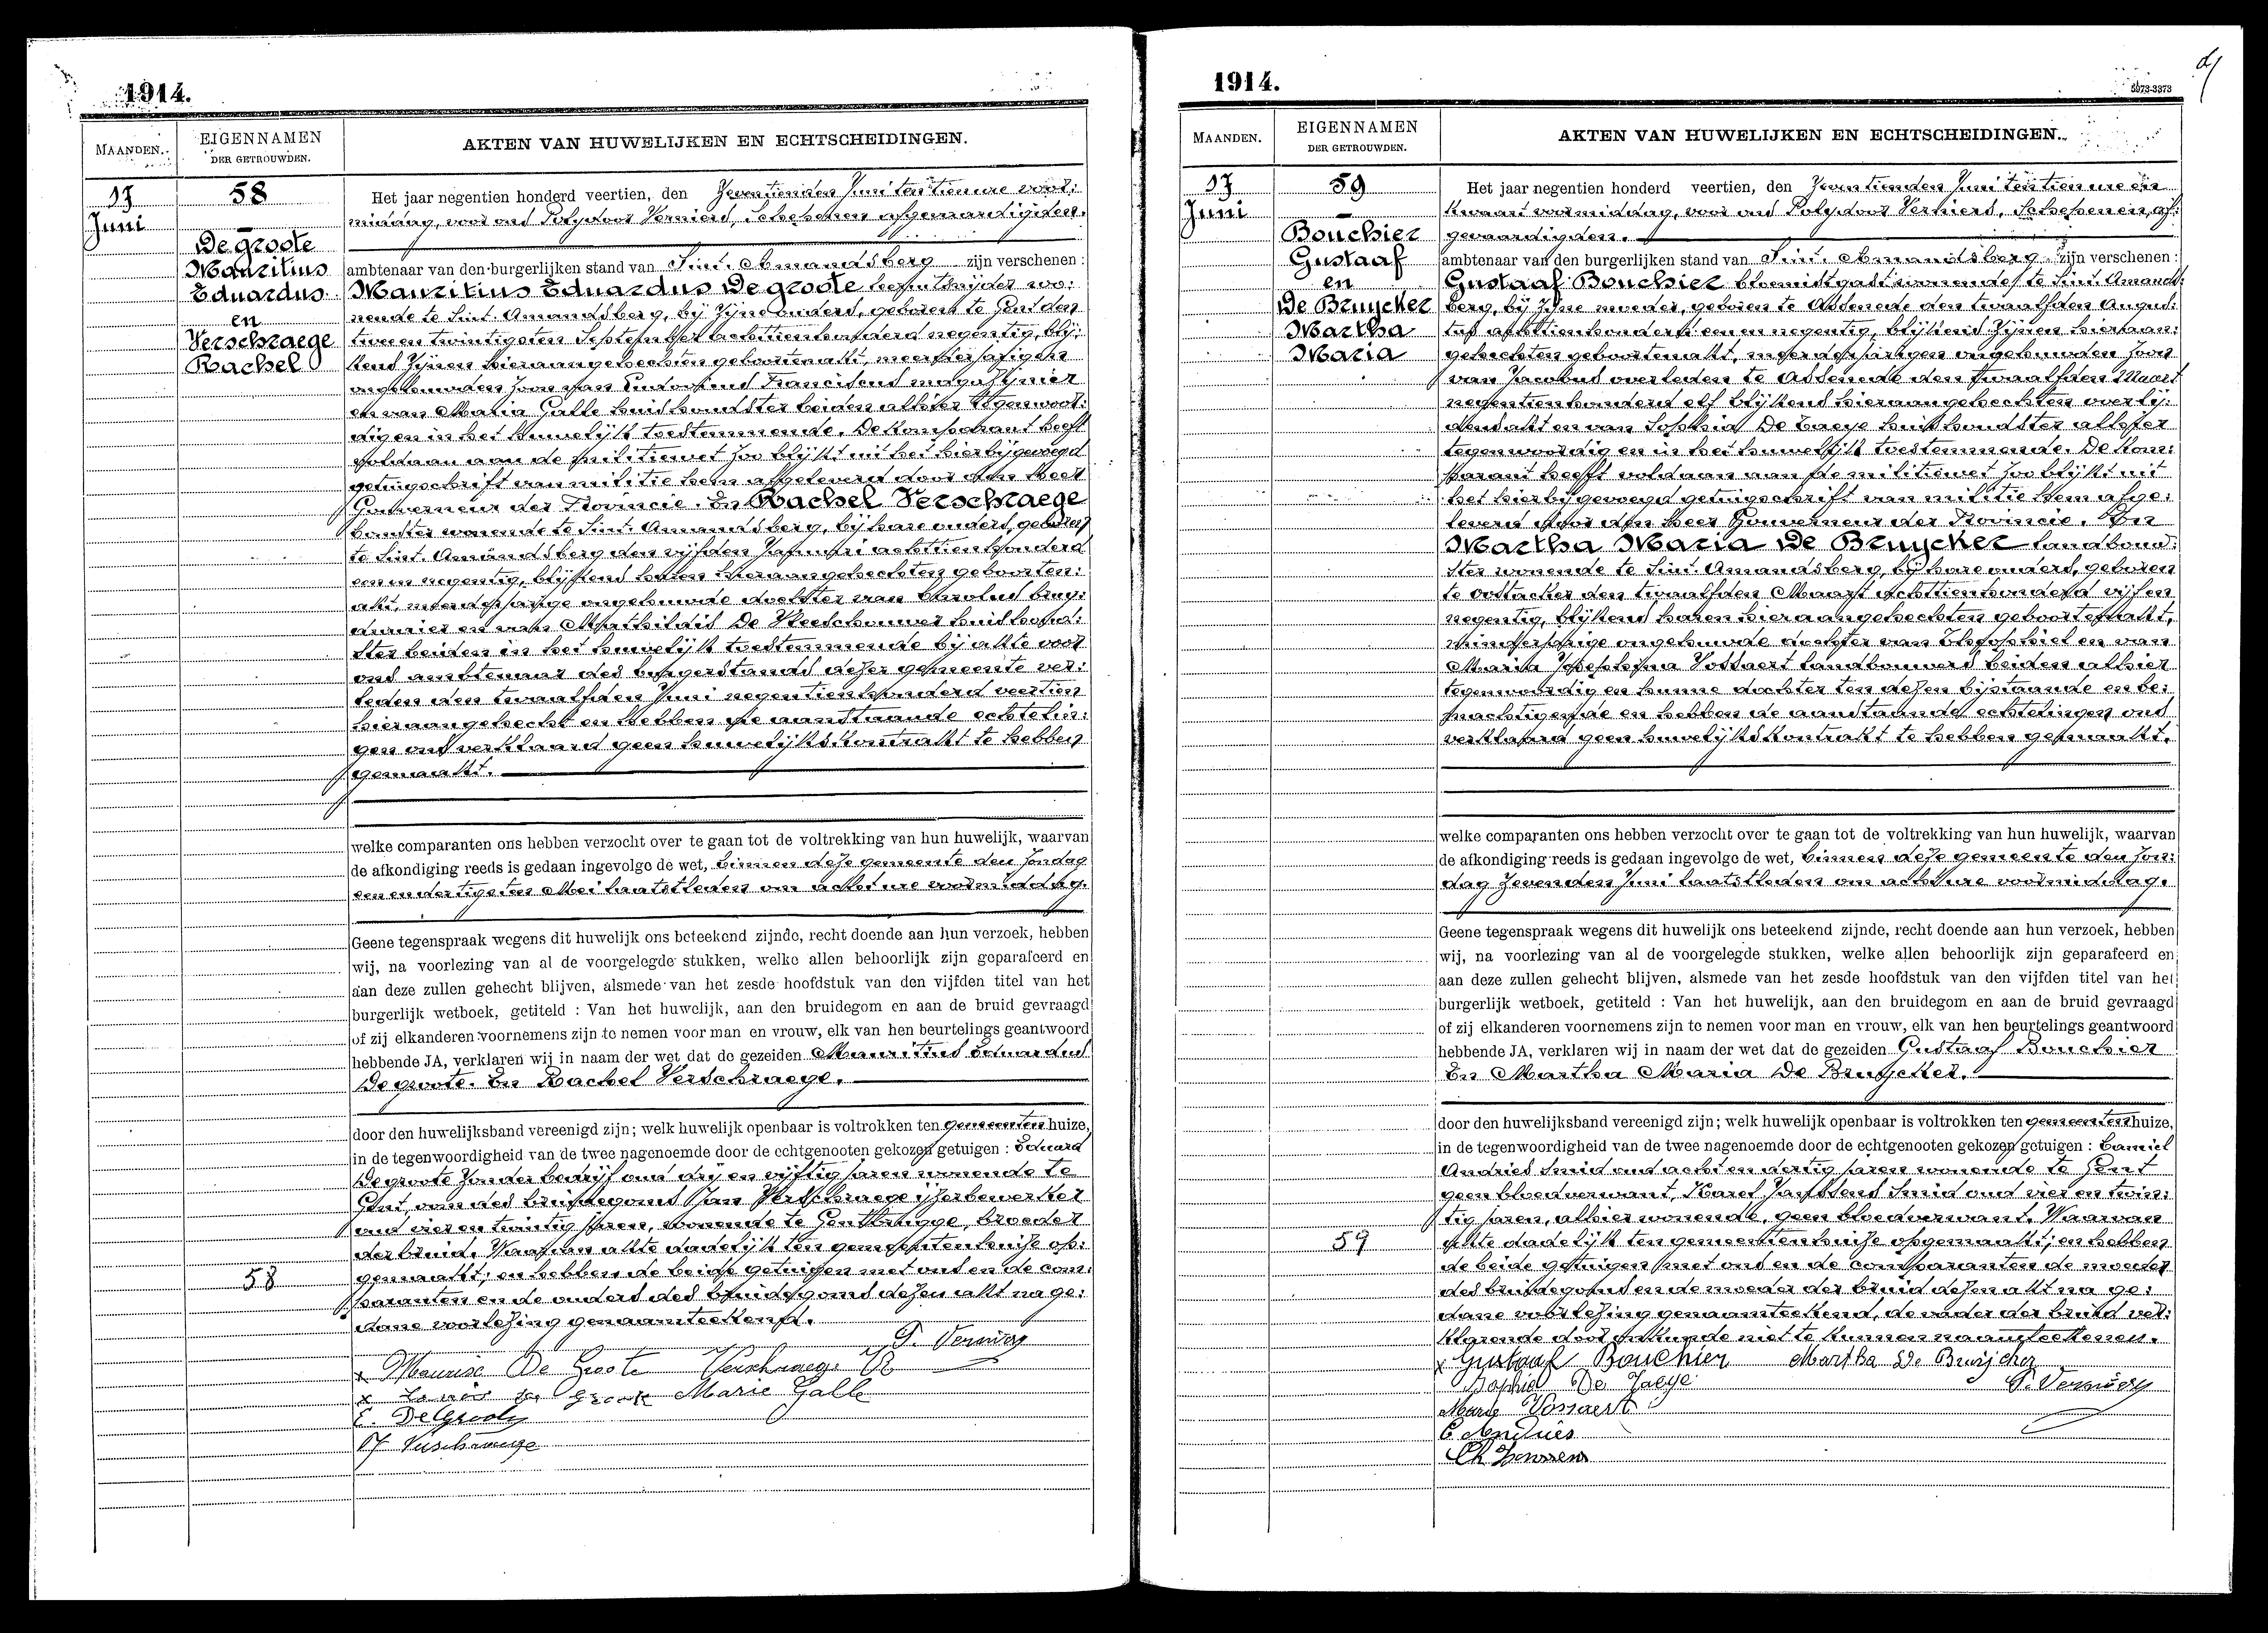 1914.
MAANDEN.
EIGENNAMEN
DER GETROUWDEN.
AKTEN VAN HUWELIJKEN EN ECHTSCHEIDINGEN.
17
Juni
58
De groote
Mauritius
Eduardus
en
Verschraege
Rachel
Het jaar negentien honderd veertien, den Zeventienden Juni ten tien ure voor:
middag, voor ons Polydoor Verniers, Schepenen afgevaardigden.
ambtenaar van den burgerlijken stand van Sint. Amandsberg zijn verschenen:
Mauritius Eduardus De groote wo:
nende te Sint. Amandsberg, bij zijne ouders, geboren te Gent den
twee en twintigsten September achttienhonderd negentig, blij:
kens zijnen hieraangehechten geboortenakt, meerderjarigen
ongehuwden zoon van Ludovicus Franciscus magazijnier
en van Maria Galle huishoudster beiden alhier tegenwoor:
dig en in het huwelijk toestemmende. De komparant heeft
voldaan aan de militiewet zoo blijkt uit het hierbijgevoegd
getuigschrift van militie hem afgeleverd door den Heer
Gouverneur der Provincie. En Rachel Verschraege
wonende te Sint. Amandsberg, bij hare ouders, geboren
te Sint. Amandsberg den vijfden Januari achttienhonderd
een en negentig, blijkens haren hieraangehechten geboorten:
akt, meerderjarige ongehuwde dochter van Carolus brug:
en van Mathildis De Meeschouwer huishoud:
ster beiden in het huwelijk toestemmende bij akte voor
ons ambtenaar des burgerstands dezer gemeente ver:
leden den twaalfden Juni negentienhonderd veertien
hieraangehecht en hebben de aanstaande echtelin:
gen ons verklaard geen huwelijkskontrakt te hebben
gemaakt.
welke comparanten ons hebben verzocht over te gaan tot de voltrekking van hun huwelijk, waarvan
de afkondiging reeds is gedaan ingevolge de wet, binnen deze gemeente den Zondag
een en dertigsten Mei laatstleden om acht ure voormiddag.
Geene tegenspraak wegens dit huwelijk ons beteekend zijnde, recht doende aan hun verzoek, hebben
wij, na voorlezing van al de voorgelegde stukken, welke allen behoorlijk zijn geparafeerd en
aan deze zullen gehecht blijven, alsmede van het zesde hoofdstuk van den vijfden titel van het
burgerlijk wetboek, getiteld : Van het huwelijk, aan den bruidegom en aan de bruid gevraagd
of zij elkanderen voornemens zijn te nemen voor man en vrouw, elk van hen beurtelings geantwoord
hebbende JA, verklaren wij in naam der wet dat de gezeiden Mauritius Eduardus
De groote. En Rachel Verschraege.
door den huwelijksband vereenigd zijn; welk huwelijk openbaar is voltrokken ten gemeentenhuize,
in de tegenwoordigheid van de twee nagenoemde door de echtgenooten gekozen getuigen : Eduard
De groote zonder bedrijf oud drij en vijftig jaren wonende te
Gent, oom des bruidegoms Jan Verschraege ijzerbewerker
oud vier en twintig jaren, wonende te Gentbrugge, broeder
der bruid. Waarvan akte dadelijk ten gemeentenhuize op:
gemaakt; en hebben de beide getuigen met ons en de com:
paranten en de ouders des bruidegoms dezen akt na ge:
dane voorlezing genaamteekend.
58
Maurice De Groote Verschraege R
Marie Galle
E. DeGroote
J Verschraege
1914.
5973-3373
MAANDEN.
EIGENNAMEN
DER GETROUWDEN.
AKTEN VAN HUWELIJKEN EN ECHTSCHEIDINGEN.
17
Juni
59
Bouchier
Gustaaf
en
De Bruycker
Martha
Maria
Het jaar negentien honderd veertien, den Zeventienden Juni ten tien ure een
kwaart voormiddag, voor ons Polydoor Verniers, Schepenen, af:
gevaardigden.
ambtenaar van den burgerlijken stand van Sint. Amandsberg zijn verschenen:
Gustaaf Bouchier bloemistgast wonende te Sint. Amands:
berg, bij zijne moeder, geboren te Assenede den twaalfden Augus:
tus achttienhonderd een en negentig, blijkens zijnen hieraan:
gehechten geboortenakt, meerderjarigen ongehuwden zoon
van Jacobus overleden te Assenede den twaalfden Maart
negentienhonderd elf blijkens hieraangehechten overlij:
densakt en van Sophia De Jaege huishoudster alhier
tegenwoordig en in het huwelijk toestemmende. De kom:
parant heeft voldaan aan de militiewet zoo blijkt uit
het hierbijgevoegd getuigschrift van militie hem afge:
leverd door den heer Gouverneur der Provincie. En
Martha Maria De Bruycker landbouw:
ster wonende te Sint. Amandsberg, bij hare ouders, geboren
te Oostacker den twaalfden Maart achttienhonderd vijf en
negentig, blijkens haren hieraangehechten geboortenakt,
minderjarige ongehuwde dochter van Theophiel en van
Maria Josephina Vossaert landbouwers beiden alhier
tegenwoordig en hunne dochter ten dezen bijstaande en be:
machtigende en hebben de aanstaande echtelingen ons
verklaard geen huwelijkskontrakt te hebben gemaakt.
welke comparanten ons hebben verzocht over te gaan tot de voltrekking van hun huwelijk, waarvan
de afkondiging reeds is gedaan ingevolge de wet, binnen deze gemeente den Zon:
dag zevenden Juni laatstleden om acht ure voormiddag.
Geene tegenspraak wegens dit huwelijk ons beteekend zijnde, recht doende aan hun verzoek, hebben
wij, na voorlezing van al de voorgelegde stukken, welke allen behoorlijk zijn geparafeerd en
aan deze zullen gehecht blijven, alsmede van het zesde hoofdstuk van den vijfden titel van het
burgerlijk wetboek, getiteld : Van het huwelijk, aan den bruidegom en aan de bruid gevraagd
of zij elkanderen voornemens zijn te nemen voor man en vrouw, elk van hen beurtelings geantwoord
hebbende JA, verklaren wij in naam der wet dat de gezeiden Gustaaf Bouchier
En Martha Maria De Bruycker.
door den huwelijksband vereenigd zijn; welk huwelijk openbaar is voltrokken ten gemeentenhuize,
in de tegenwoordigheid van de twee nagenoemde door de echtgenooten gekozen getuigen : Camiel
Andries smid oud acht en dertig jaren wonende te Gent
geen bloedverwant, Karel Janssens smid oud vier en twin:
tig jaren, alhier wonende, geen bloedverwant. Waarvan
akte dadelijk ten gemeentenhuize opgemaakt; en hebben
de beide getuigen met ons en de comparanten de moeder
des bruidegoms en de moeder der bruid dezen akt na ge:
dane voorlezing genaamteekend, de vader der bruid ver:
klarende door onkunde niet te kunnen naamteekenen.
59
Gustaaf Bouchier Martha De Bruijcker
Sophia De Jaege
Marie Vossaert
C Andries
Ch Janssens